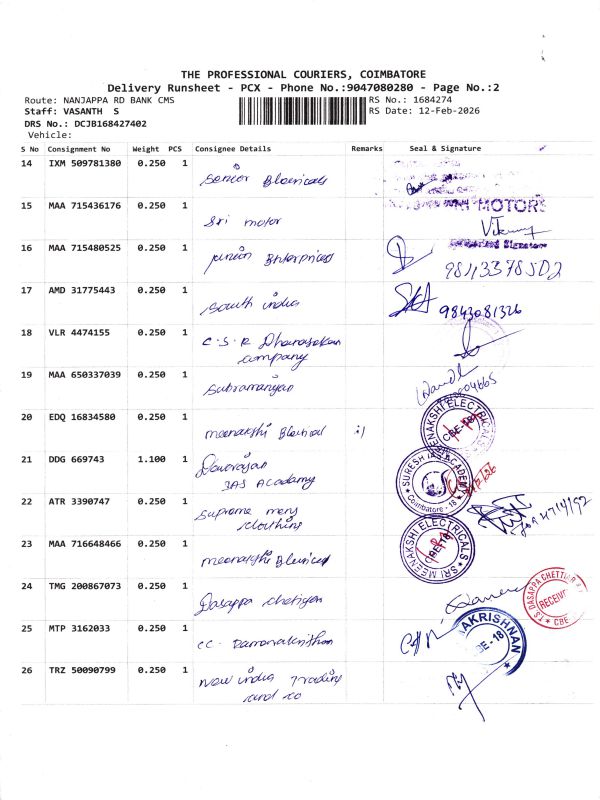 THE PROFESSIONAL COURIERS, COIMBATORE
Delivery Runsheet - PCX - Phone No.:9047080280 - Page No.:2
Route: NANJAPPA RD BANK CMS RS No.: 1684274
Staff: VASANTH S RS Date: 12-Feb-2026
DRS No.: DCJB168427402
Vehicle:
S No Consignment No Weight PCS Consignee Details Remarks Seal & Signature
14 IXM 509781380 0.250 1
Senior Electricals
15 MAA 715436176 0.250 1 MOTORS
Sri motor
Authorised Signatore
16 MAA 715480525 0.250 1
Enterprices
17 AMD 31775443 0.250 1
South india 9843081326
18 VLR 4474155 0.250 1
C.S.R
company
19 MAA 650337039 0.250 1
Subramaniyan
20 EDQ 16834580 0.250 1 MEENAKSHI ELECTRICALS CBE-18
meenakshi Electrical
21 DDG 669743 1.100 1 SURESH IAS ACADEMY Coimbatore - 18
Devarajan
IAS Academy
22 ATR 3390747 0.250 1
Supreme mens
clothing
23 MAA 716648466 0.250 1 SRI MEENAKSHI ELECTRICALS CBE-18
meenakshi Electrical
24 TMG 200867073 0.250 1 T.S. DASAPPA CHETTIAR RECEIVED CBE
Dasappa chetiyar
25 MTP 3162033 0.250 1 AKRISHNAN CBE - 18
CC. Ramanakrithan
26 TRZ 50090799 0.250 1
New india Trading
and co